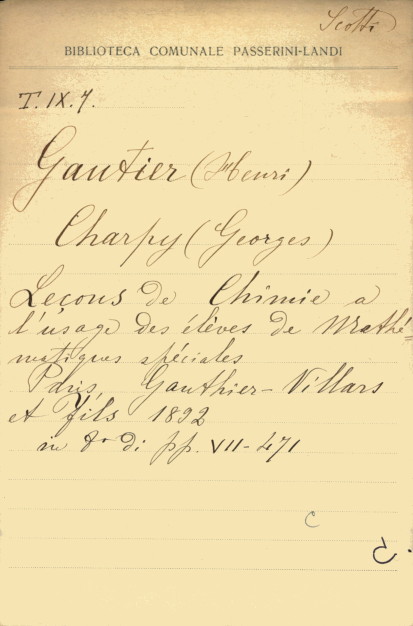 Scotti
BIBLIOTECA COMUNALE PASSERINI-LANDI
T. IX. 7.
Gautier (Henri)
Charpy (Georges)
Leçons de Chimie a
l'usage des élèves de Mathé-
matiques spéciales
Paris, Gauthier-Villars
et Fils 1892
in 8º di pp. VII-471
C